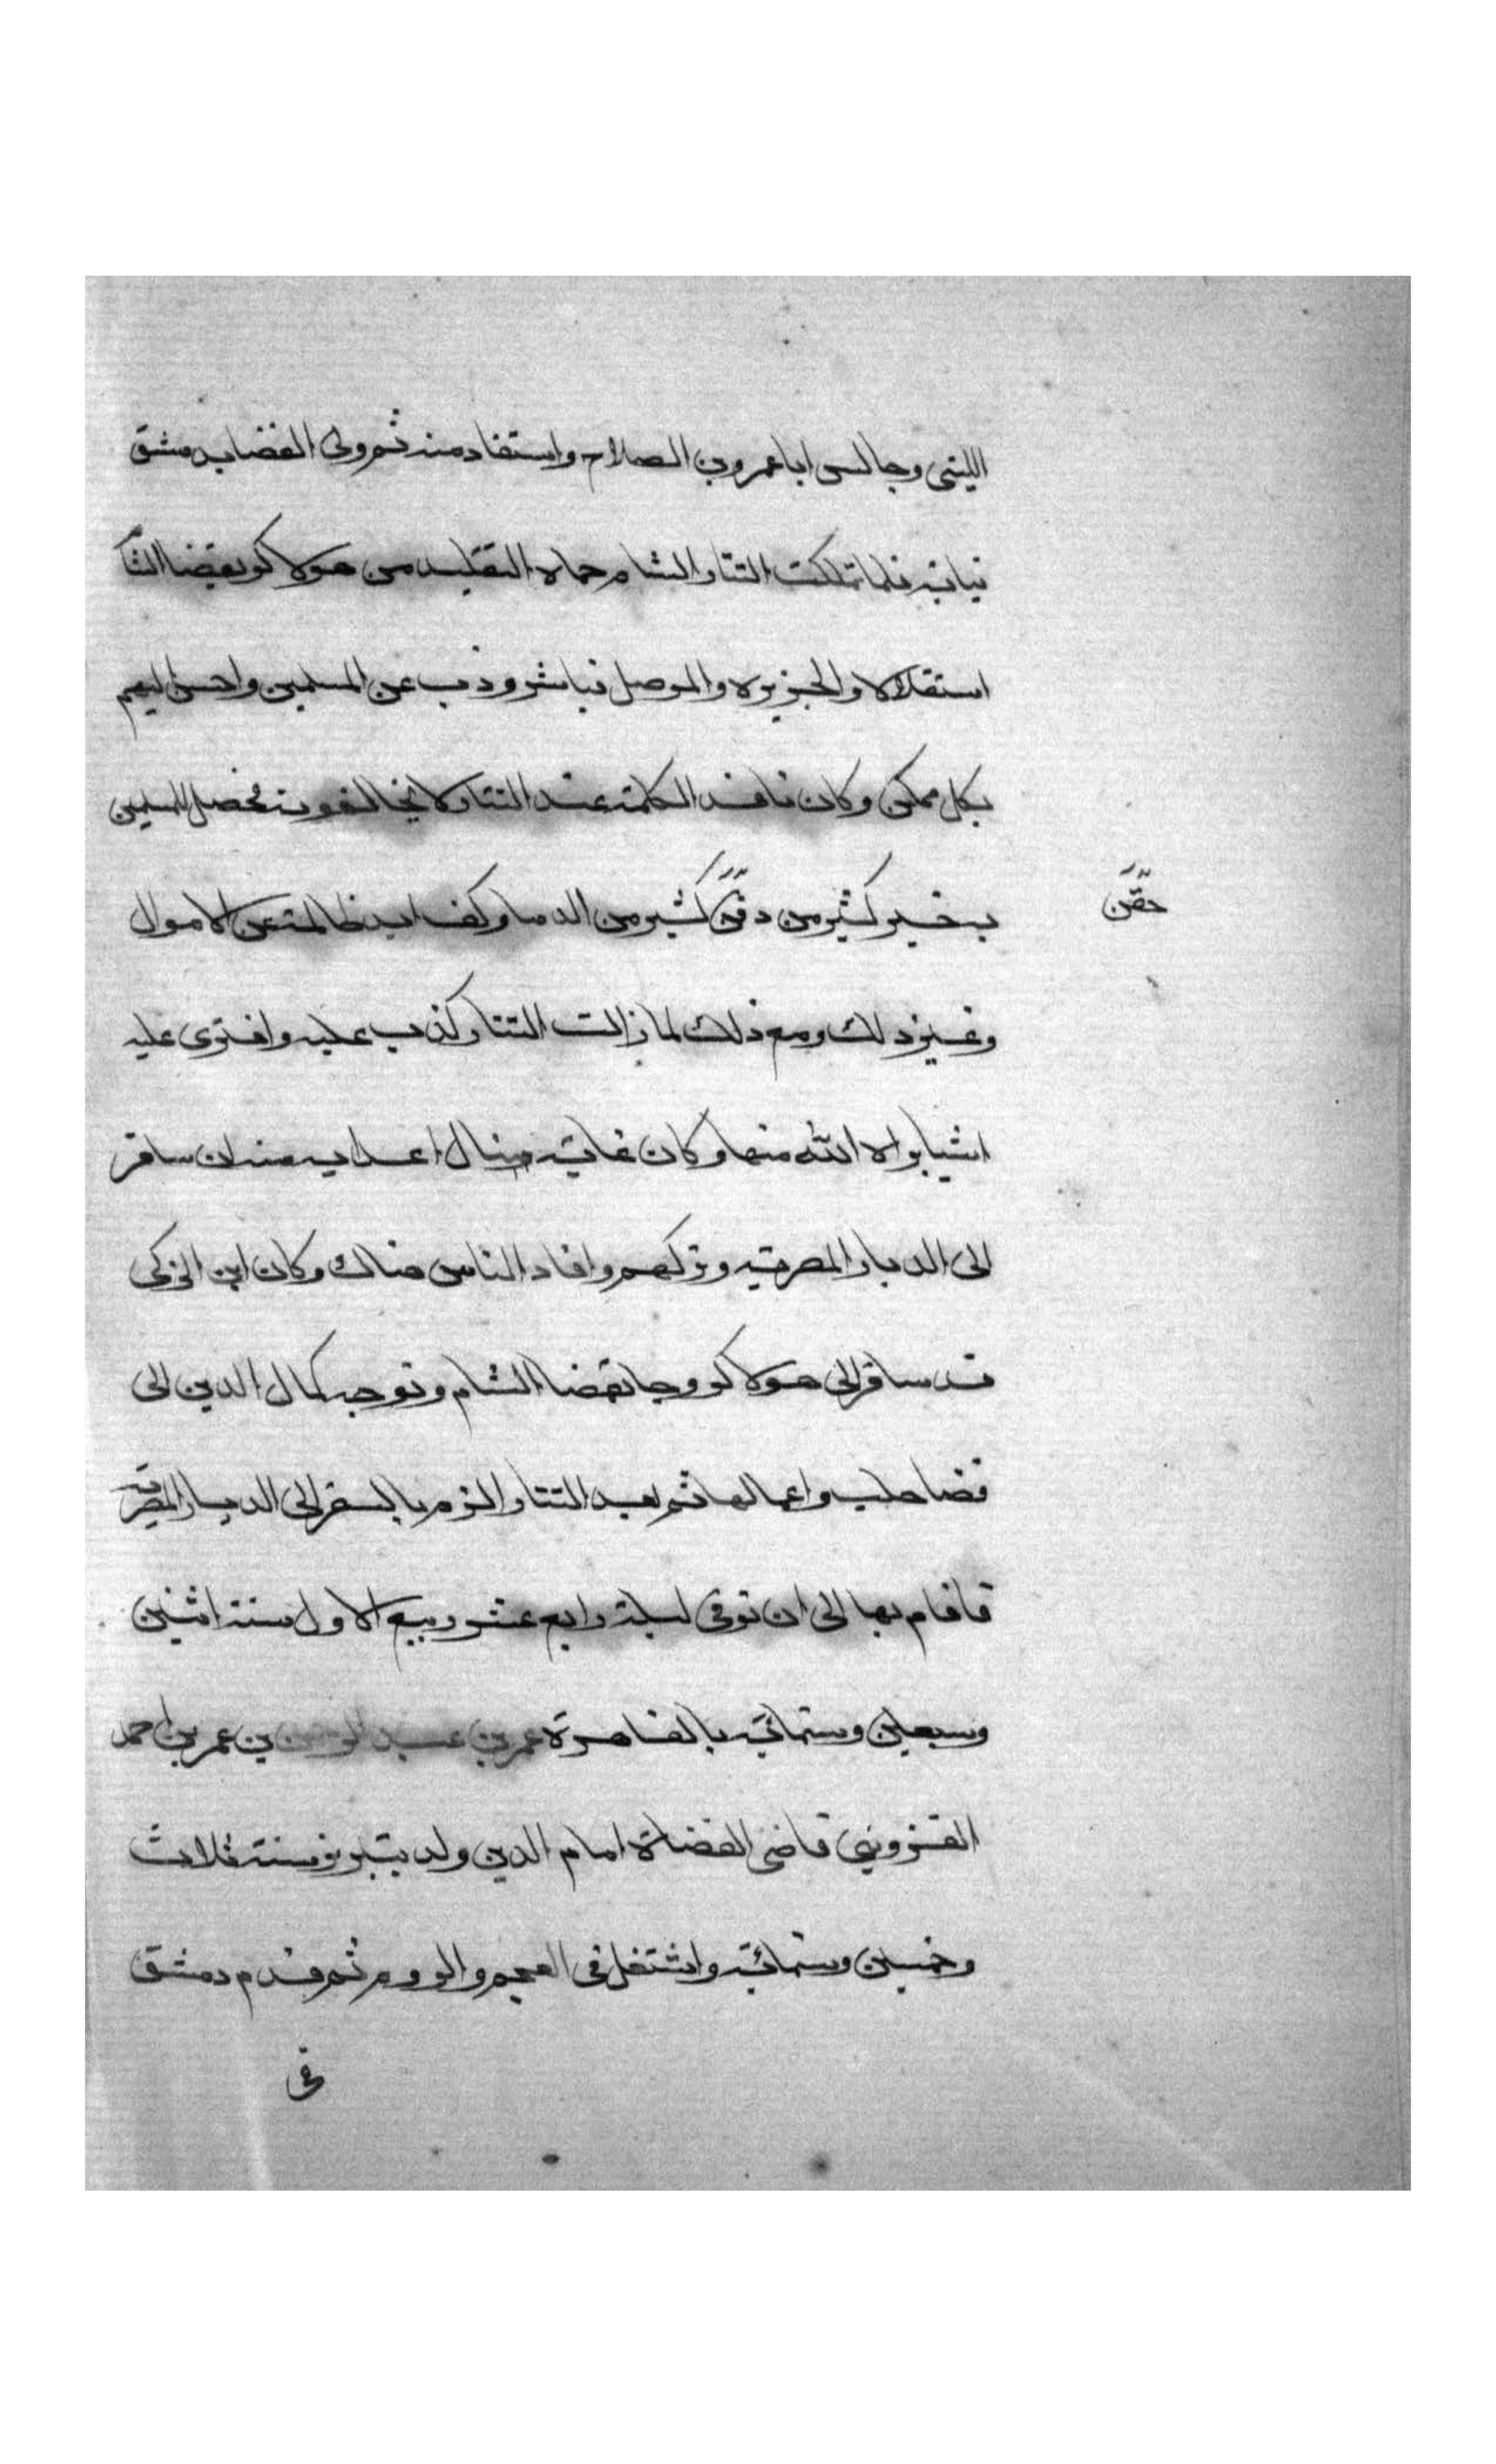 الليثى وجالس ابا عمرو بن الصلاح واستفاد منه ثم ولى القضا بدمشق
نيابه فلما تملكت التتار الشام جاه التقليد من هولاكو بقضا الشا
استقلالا والجزيره والموصل فباشر وذب عن المسلمين واحسن اليهم
بكل ممكن وكان نافذ الكلمة عند التتار لا يخالفونه فحصل للمسلمين
به خير كثير من كثير من الدما وكف ايد ظالمة عن الاموال
حقن
وغير ذلك ومع ذلك لما زالت التتار كذب عليه وافترى عليه
اشيا براه الله منها وكان غاية منال اعدايه منه ان سافر
الى الديار المصرية وتركهم وافاد الناس هناك وكان ابن الزكى
قد سافر الى هولاكو وجا بقضا الشام وتوجه كمال الدين الى
قضا حلب واعمالها ثم بعد التتار الزم بالسفر الى الديار المصرية
فاقام بها الى ان توفى ليلة رابع عشر ربيع الاول سنة اثنين
وسبعين وستمائة بالقاهرة عمر بن عبد الرحمن بن عمر بن احمد
القزوينى قاضى القضاة امام الدين ولد بتبريز سنة ثلاث
وخمسين وستمائة واشتغل فى العجم والروم ثم قدم دمشق
فى